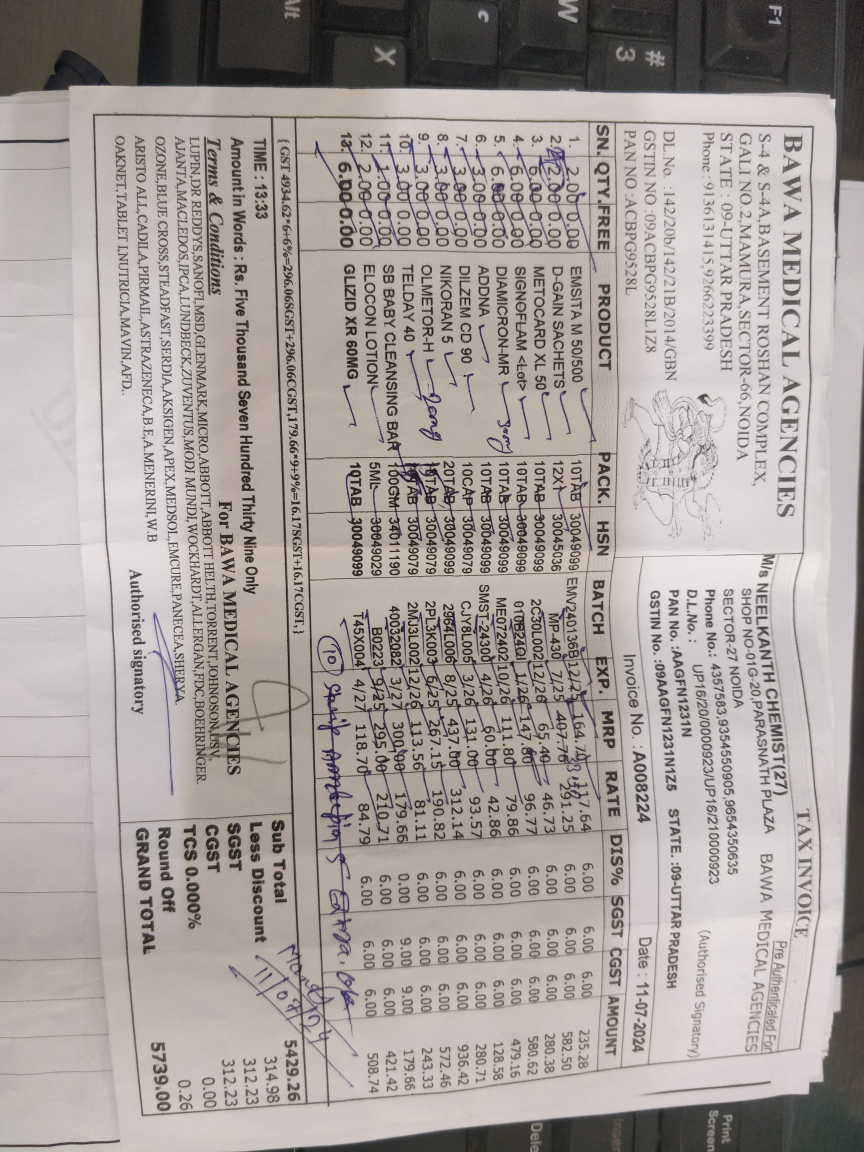 BAWA MEDICAL AGENCIES
S-4 & S-4A,BASEMENT ROSHAN COMPLEX,
GALI NO.2,MAMURA,SECTOR-66,NOIDA
STATE : 09-UTTAR PRADESH
Phone : 9136131415,9266223399
DL.No. :142/20b/142/21B/2014/GBN
GSTIN NO :09ACBPG9528L1Z8
PAN NO :ACBPG9528L
TAX INVOICE
Pre Authenticated For
M/s NEELKANTH CHEMIST(27) BAWA MEDICAL AGENCIES
SHOP NO-01G-20,PARASNATH PLAZA
SECTOR-27 NOIDA
Phone No.: 4357583,9354550905,9654350635
(Authorised Signatory)
D.L.No. : UP16/20/0000923/UP16/210000923
PAN No. :AAGFN1231N STATE. :09-UTTAR PRADESH
GSTIN No. :09AAGFN1231N1Z5
Invoice No. : A008224 Date : 11-07-2024
SN. QTY. FREE PRODUCT PACK. HSN BATCH EXP. MRP RATE DIS% SGST CGST AMOUNT
1. 2.00 0.00 EMSITA M 50/500 10TAB 30049099 EMV240136B 12/25 164.70 117.64 6.00 6.00 6.00 235.28
2. 2.00 0.00 D-GAIN SACHETS 12X1 30045036 MP-430 7/25 407.76 291.25 6.00 6.00 6.00 582.50
3. 6.00 0.00 METOCARD XL 50 10TAB 30049099 2C30L002 12/26 65.40 46.73 6.00 6.00 6.00 280.38
4. 6.00 0.00 SIGNOFLAM <Lot> 10TAB 30049099 010B24GL 1/26 96.77 6.00 6.00 6.00 580.62
5. 6.00 0.00 DIAMICRON-MR 30mg 10TAB 30049099 ME072402 10/26 111.80 79.86 6.00 6.00 6.00 479.16
6. 3.00 0.00 ADDNA 10TAB 30049099 SMST-24300 4/26 60.00 42.86 6.00 6.00 6.00 128.58
7. 3.00 0.00 DILZEM CD 90 10CAP 30049079 CJY8L005 3/26 131.00 93.57 6.00 6.00 6.00 280.71
8. 3.00 0.00 NIKORAN 5 20TAB 30049099 2964L006 8/25 437.00 312.14 6.00 6.00 6.00 936.42
9. 3.00 0.00 OLMETOR-H 15TAB 30049079 2PL3K003 6/25 267.15 190.82 6.00 6.00 6.00 572.46
10. 3.00 0.00 TELDAY 40 30049079 2MJ3L002 12/26 113.56 81.11 6.00 6.00 6.00 243.33
11. 1.00 0.00 SB BABY CLEANSING BAR 100GM 34011190 40032082 3/27 300.00 179.66 0.00 9.00 9.00 179.66
12. 2.00 0.00 ELOCON LOTION 5ML 30049029 B0223 9/25 295.00 210.71 6.00 6.00 6.00 421.42
13. 6.00 0.00 GLIZID XR 60MG 10TAB 30049099 T45X004 4/27 118.70 84.79 6.00 6.00 6.00 508.74
11/07/24
{GST 4934.62*6+6%=296.06SGST+296.06CGST,179.66*9+9%=16.17SGST+16.17CGST,}
TIME : 13:33
Amount in Words : Rs. Five Thousand Seven Hundred Thirty Nine Only
For BAWA MEDICAL AGENCIES
Terms & Conditions
LUPIN,DR REDDYS,SANOFI,MSD,GLENMARK,MICRO,ABBOTT,ABBOTT HELTH,TORRENT,JOHNOSON,USV,
AJANTA,MACLEDOS,IPCA,LUNDBECK,ZUVENTUS,MODI MUNDI,WOCKHARDT,ALLERGAN,FDC,BOEHRINGER
OZONE,BLUE CROSS,STEADFAST,SERDIA,AKSIGEN,APEX,MEDSOL,EMCURE,PANECEA,SHERYA
ARISTO ALL,CADILA,PIRMAIL,ASTRAZENECA,B.E,A.MENERINI,W.B
OAKNET,TABLET I,NUTRICIA,MAVIN,AFD,.
Authorised signatory
Sub Total 5429.26
Less Discount 314.98
SGST 312.23
CGST 312.23
TCS 0.000% 0.00
Round Off 0.26
GRAND TOTAL 5739.00
F1
#
3
W
X
Alt
Print
Screen
Dele